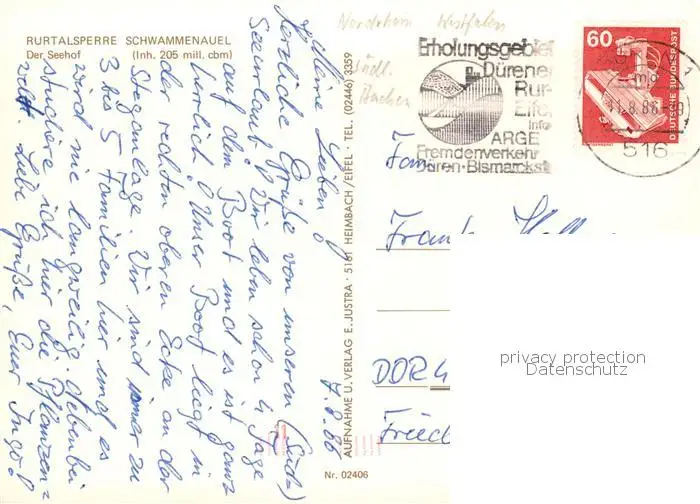 RURTALSPERRE SCHWAMMENAUEL
Der Seehof (Inh. 205 mill. cbm)
Meine Lieben!
Herzliche Grüße von unserem (Süd=)
Seeurlaub. Wir leben schon 4 Tage
auf dem Boot und es ist ganz
herrlich. Unser Boot liegt in
der rechten oberen Ecke an der
Steganlage. Wir sind immer zu
3 bis 5 Familien hier und es
wird nie langweilig. Nebenbei
studiere ich hier die Pflanzen=
welt. Liebe Grüße, Euer Ingo!
7.8.86
AUFNAHME U. VERLAG E. JUSTRA · 5161 HEIMBACH/EIFEL · TEL. (02446) 3359
Nr. 02406
Nordrhein Westfalen
südl.
Aachen
Erholungsgebiet
Dürener
Rur-
Eifel
Info
ARGE
Fremdenverkehr
Düren·Bismarckst
60
DEUTSCHE BUNDESPOST
11.8.86
516
Fam.
Frank
DDR 4
Fried
privacy protection
Datenschutz